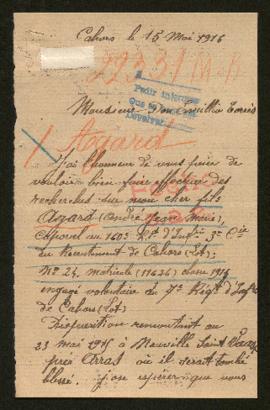 Cahors le 15 Mai 1916
22331 M.R.
Pedir informes
Monsieur Emilio Torrès
Agard
J'ai l'honneur de vous prier de
vouloir bien faire effectuer des
recherches sur mon cher fils
Agard (André Jean Marie),
Caporal au 160e Rgt d'Infie 3e Cie
du Recrutement de Cahors (Lot);
No 24 matricule (11626) classe 1915
engagé volontaire du 7e Régt d'Infie
de Cahors (Lot)
Disparition remontant au
23 mai 1915 à Neuville Saint Vaast
près Arras où il serait tombé
blessé. J'ose espérer que vous